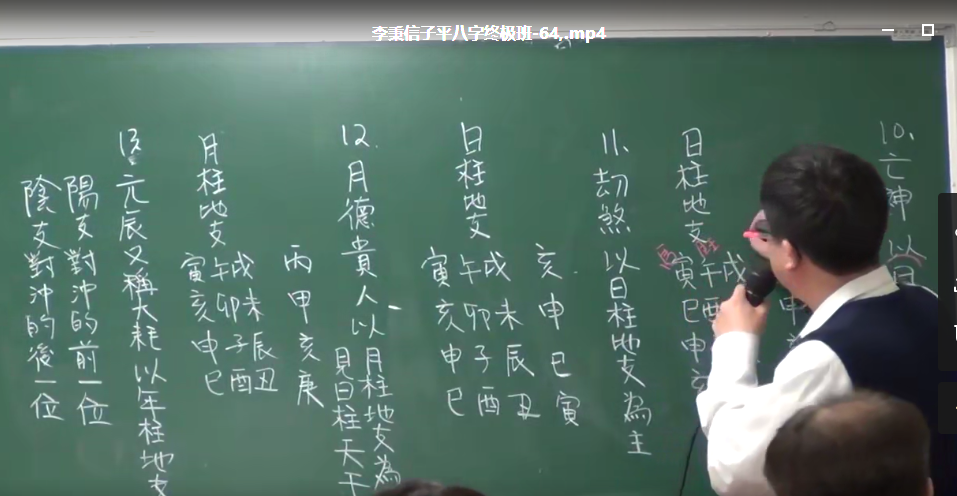 李秉信子平八字终极班-64,.mp4
10.亡神 以日
日柱地支
寅午戌
巳酉
申
亥
11.劫煞 以日柱地支為主
日柱地支
寅午戌 亥
亥卯未 申
申子辰 巳
巳酉丑 寅
12.月德貴人以月柱地支為
見日柱天干
月柱地支
寅午戌 丙
亥卯未 甲
申子辰 亥
巳酉丑 庚
13.元辰又稱大耗以年柱地支
陽支對沖的前一位
陰支對沖的後一位